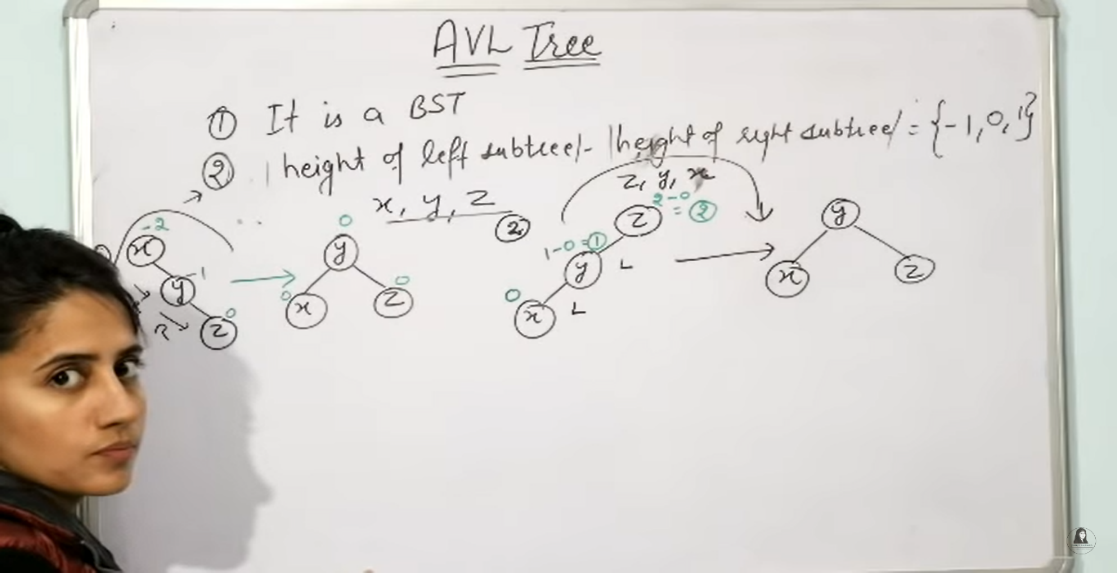 AVL Tree
① It is a BST
② |height of left subtree| - |height of right subtree| = {-1, 0, 1}
x, y, z
② z, y, x
-2
x
-1
y
0
z
R
0
y
0
x
0
z
2-0 = ②
z
1-0 = ①
y
L
0
x
L
y
x
z